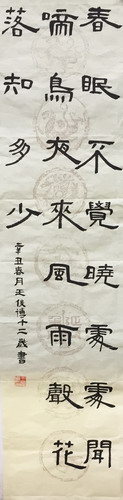 春眠不覺曉處處聞
啼鳥夜來風雨聲花
落知多少
辛丑春月王俊博十二歲書